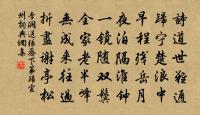 詩道世難通
歸寧楚浪中
早程殘岳月
夜泊隔淮鐘
一鏡隨雙鬢
全家老半峰
無成來往過
折盡謝亭松
李洞送張喬下第歸宣
州詞典網集